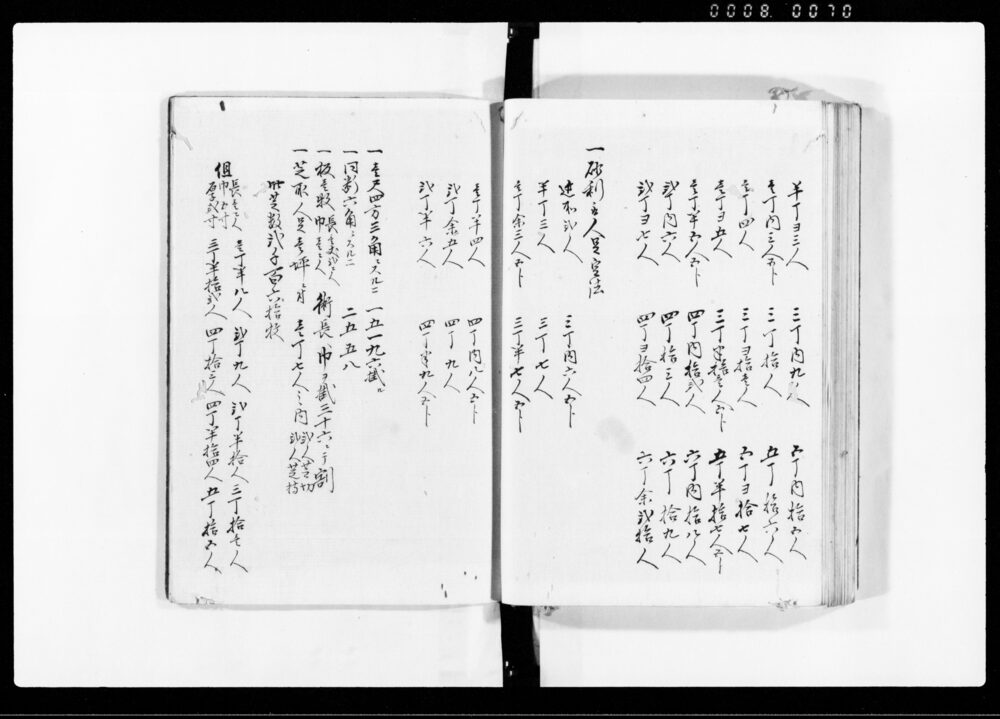 0008 0070
半丁ヨ三人 三丁内九人 五丁内拾五人
壱丁内三人五卜 三丁拾人 五丁拾六人
壱丁四人 三丁ヨ拾壱人 五丁ヨ拾七人
壱丁ヨ五人 三丁半拾壱人五卜 五丁半拾七人五卜
壱丁半五人五卜 四丁内拾弐人 六丁内拾八人
弐丁内六人 四丁拾三人 六丁拾九人
弐丁ヨ七人 四丁ヨ拾四人 六丁余弐拾人
一砂利壱人足定法
建不弐人 三丁内六人五卜
半丁三人 三丁七人
壱丁余三人五卜 三丁半七人五卜
壱丁半四人 四丁内八人五卜
弐丁余五人 四丁九人
弐丁半六人 四丁半九人五卜
一壱尺四方三角ニスルニ 一五一九六截ニ
一同断六角ニスルニ 二五五八
一板壱枚 術長ニ巾ヲ截三十六ニテ割
一芝取人足壱坪ニ付 壱丁七人之内 弐人芝切 弐人芝持
此芝数弐千百六拾枚
但 壱丁半八人 弐丁九人 弐丁半拾人 三丁拾壱人
三丁半拾弐人 四丁拾三人 四丁半拾四人 五丁拾五人